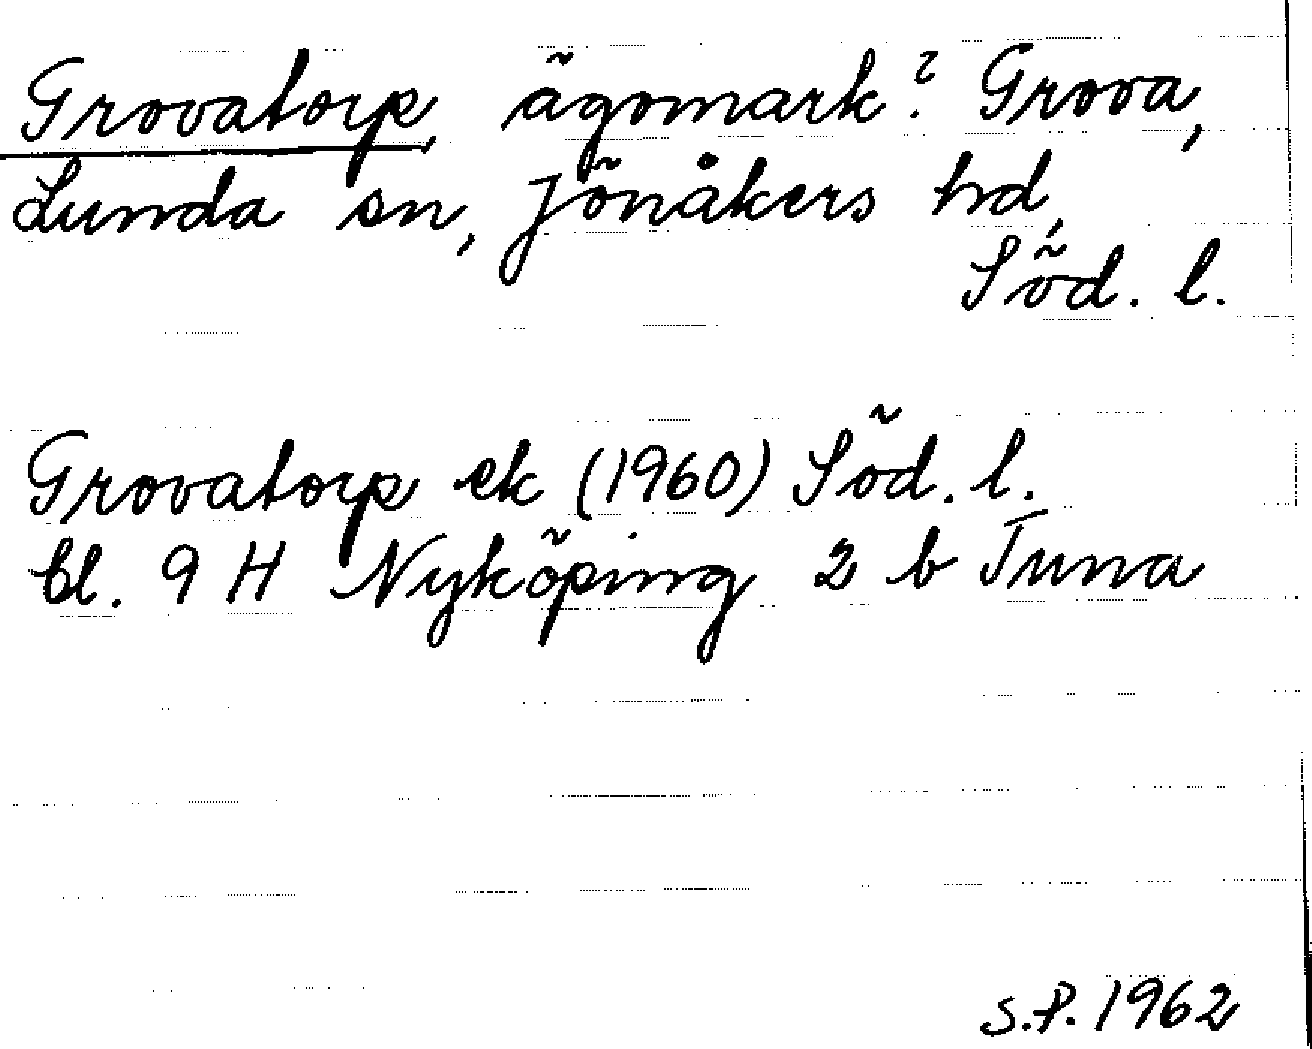 Grovatorp, ägomark? Grova,
Lunda sn, Jönåkers hd,
Söd. l.
Grovatorp ek (1960) Söd. l.
bl. 9 H Nyköping 2 b Tuna
S.P. 1962